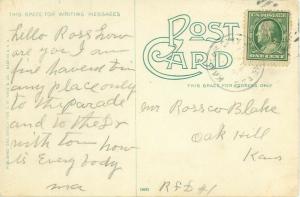 THIS SPACE FOR WRITING MESSAGES
POST CARD
THIS SPACE FOR ADDRESS ONLY
hello Ross how
are you I am
fine havend bin
any place only
to the parade
and to the Dr
with tom how
is Every body
ma
Mr Rossco Blake
Oak Hill
Kans
RFD #1